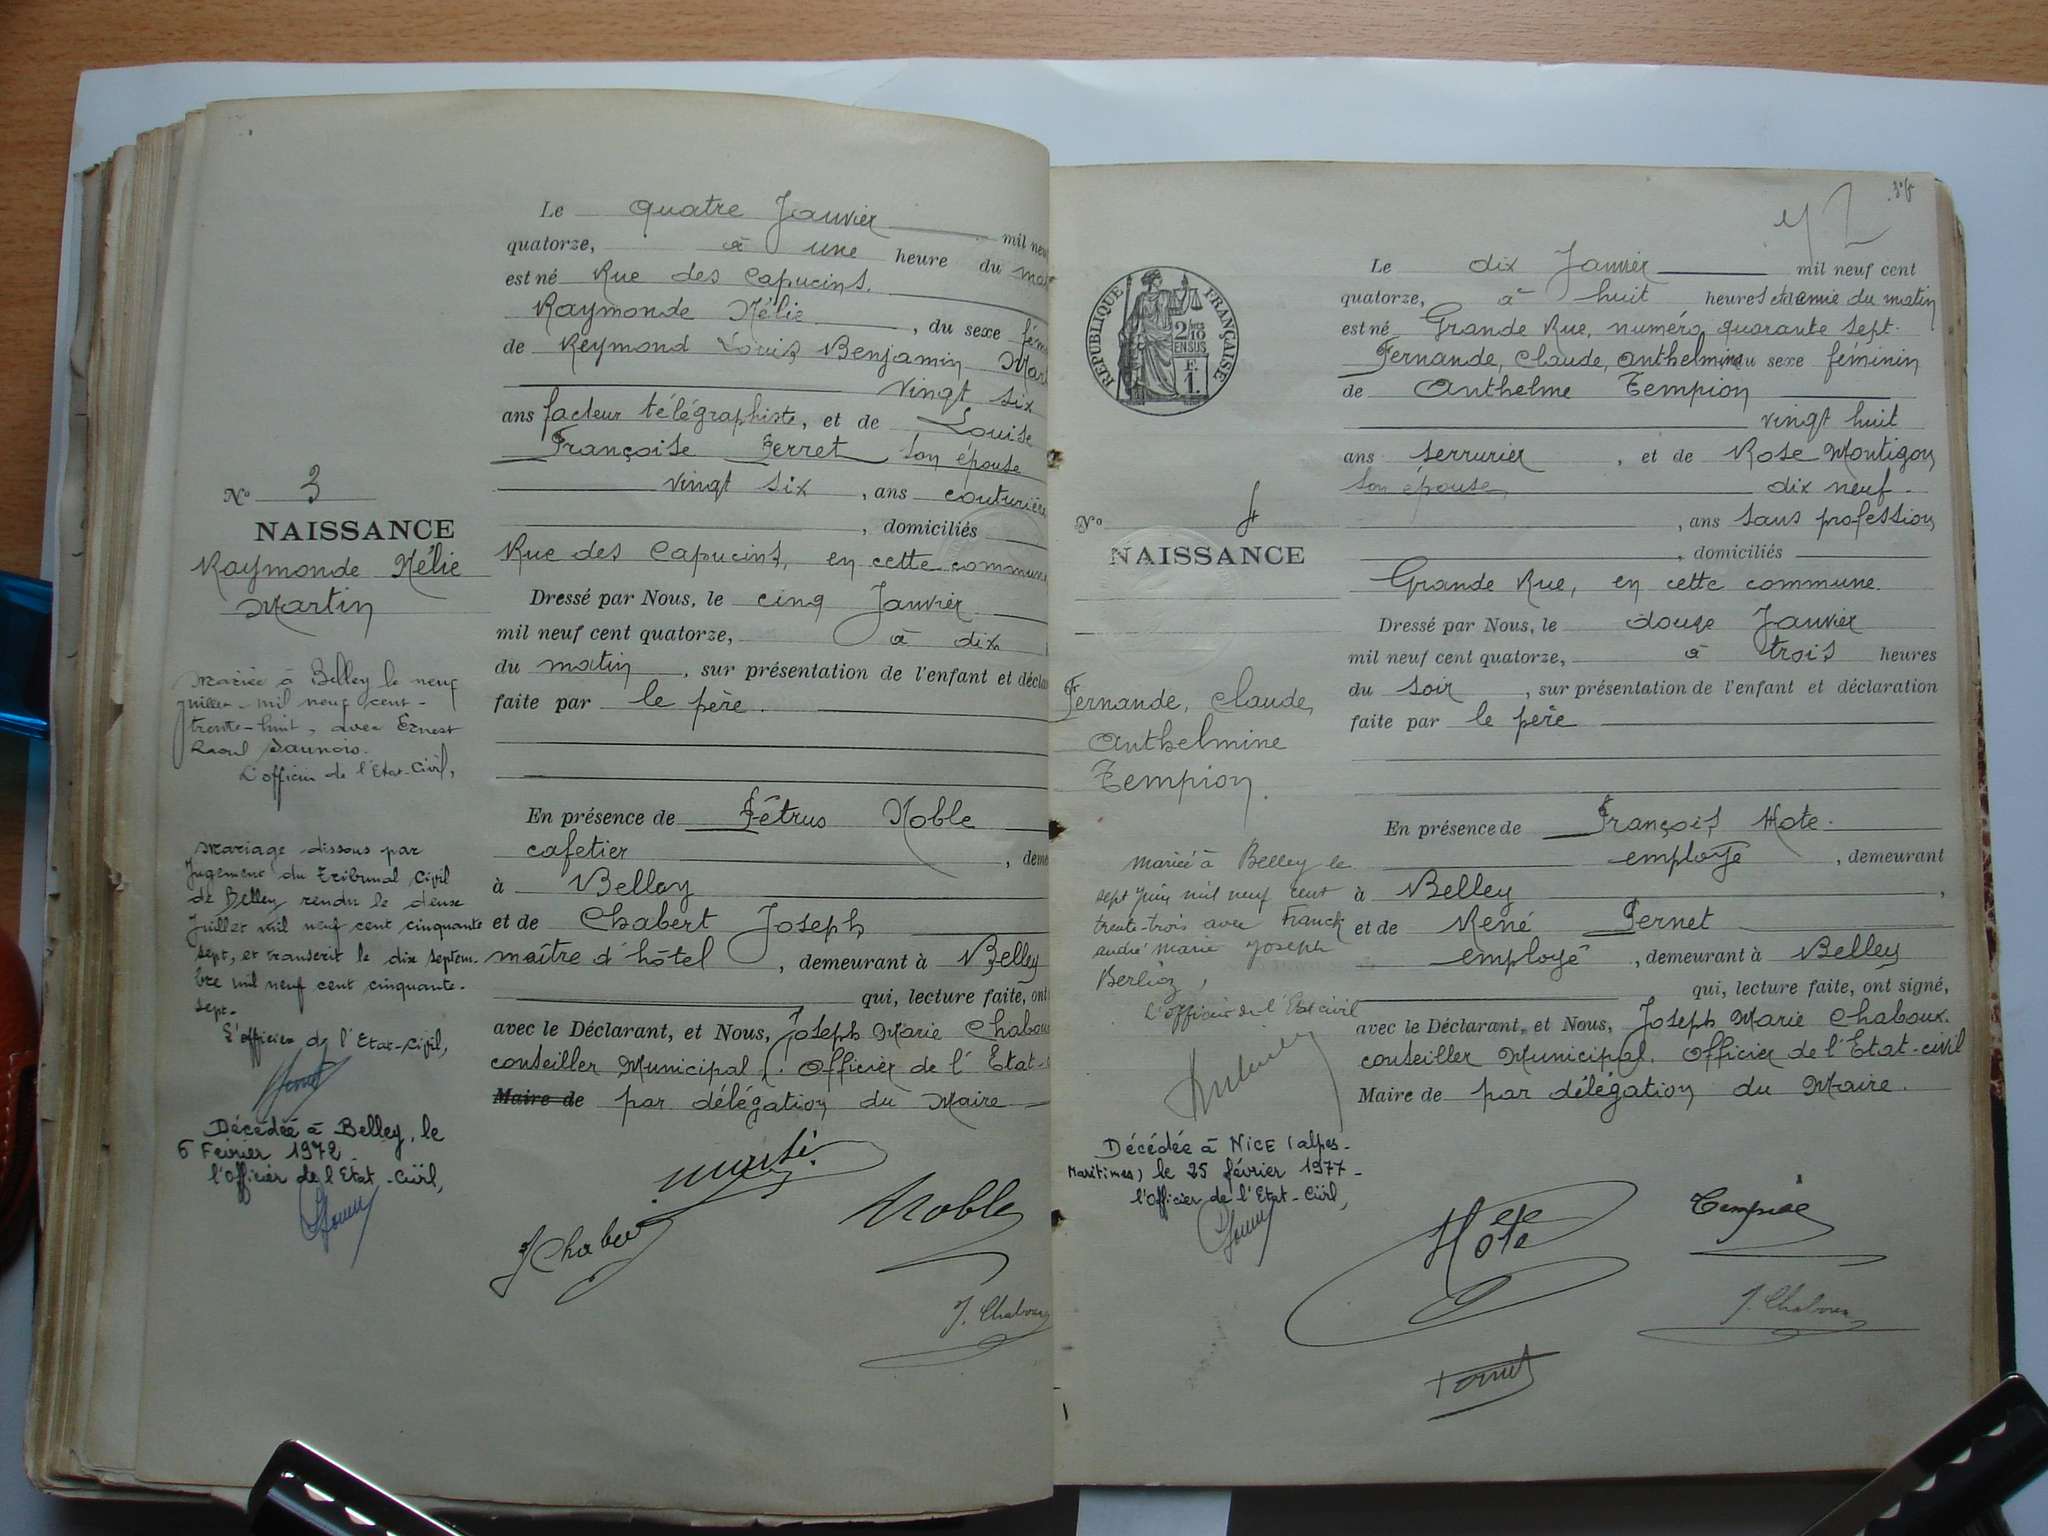 Le quatre Janvier mil neuf
quatorze, à une heure du
est né Rue des Capucins.
Raymonde Nélie, du sexe
de Reymond Louis Benjamin
vingt six
ans facteur télégraphiste, et de Louise
Françoise Ferret son épouse
vingt six, ans couturière
, domiciliés
Rue des Capucins, en cette commune
Dressé par Nous, le cinq Janvier
mil neuf cent quatorze, à dix
du matin, sur présentation de l'enfant et
faite par le père.
En présence de Pétrus Noble
cafetier,
à Belley
et de Chabert Joseph
maître d'hôtel, demeurant à Belley
qui, lecture faite, ont
avec le Déclarant, et Nous, Joseph Marie Chaboux
conseiller Municipal. Officier de l'Etat-
Maire de par délégation du Maire
Noble
J. Chaboux
N° 3
NAISSANCE
Raymonde Nélie
Martin
Mariée à Belley le neuf
juillet mil neuf cent
trente-huit, avec Ernest
Raoul Daunois.
L'officier de l'Etat-Civil,
Mariage dissous par
Jugement du Tribunal Civil
de Belley rendu le douse
Juillet mil neuf cent cinquante
sept, et transcrit le dix septem-
bre mil neuf cent cinquante-
sept.
L'officier de l'Etat-Civil,
Décédée à Belley, le
6 Février 1972
l'Officier de l'Etat-Civil,
REPUBLIQUE FRANÇAISE
2/10
EN SUS
F.
1.
Le dix Janvier mil neuf cent
quatorze, à huit heures et demie du matin
est né Grande Rue, numéro quarante sept.
Fernande, Claude, Anthelmine du sexe féminin
de Anthelme Tempion
vingt huit
ans serrurier, et de Rose Montigon
son épouse, dix neuf
, ans sans profession
, domiciliés
Grande Rue, en cette commune.
Dressé par Nous, le douze Janvier
mil neuf cent quatorze, à trois heures
du soir, sur présentation de l'enfant et déclaration
faite par le père
En présence de François Hote.
employé, demeurant
à Belley,
et de René Pernet
employé, demeurant à Belley
qui, lecture faite, ont signé,
avec le Déclarant, et Nous, Joseph Marie Chaboux.
conseiller Municipal. Officier de l'Etat-civil
Maire de par délégation du Maire.
Hote
Tempion
J. Chaboux
N° 4
NAISSANCE
Fernande, Claude,
Anthelmine
Tempion.
Mariée à Belley le
sept Juin mil neuf cent
trente-trois avec Franck
André Marie Joseph
Berlioz,
L'officier de l'Etat civil
Décédée à NICE (Alpes-
Maritimes) le 25 février 1977-
l'Officier de l'Etat-Civil,